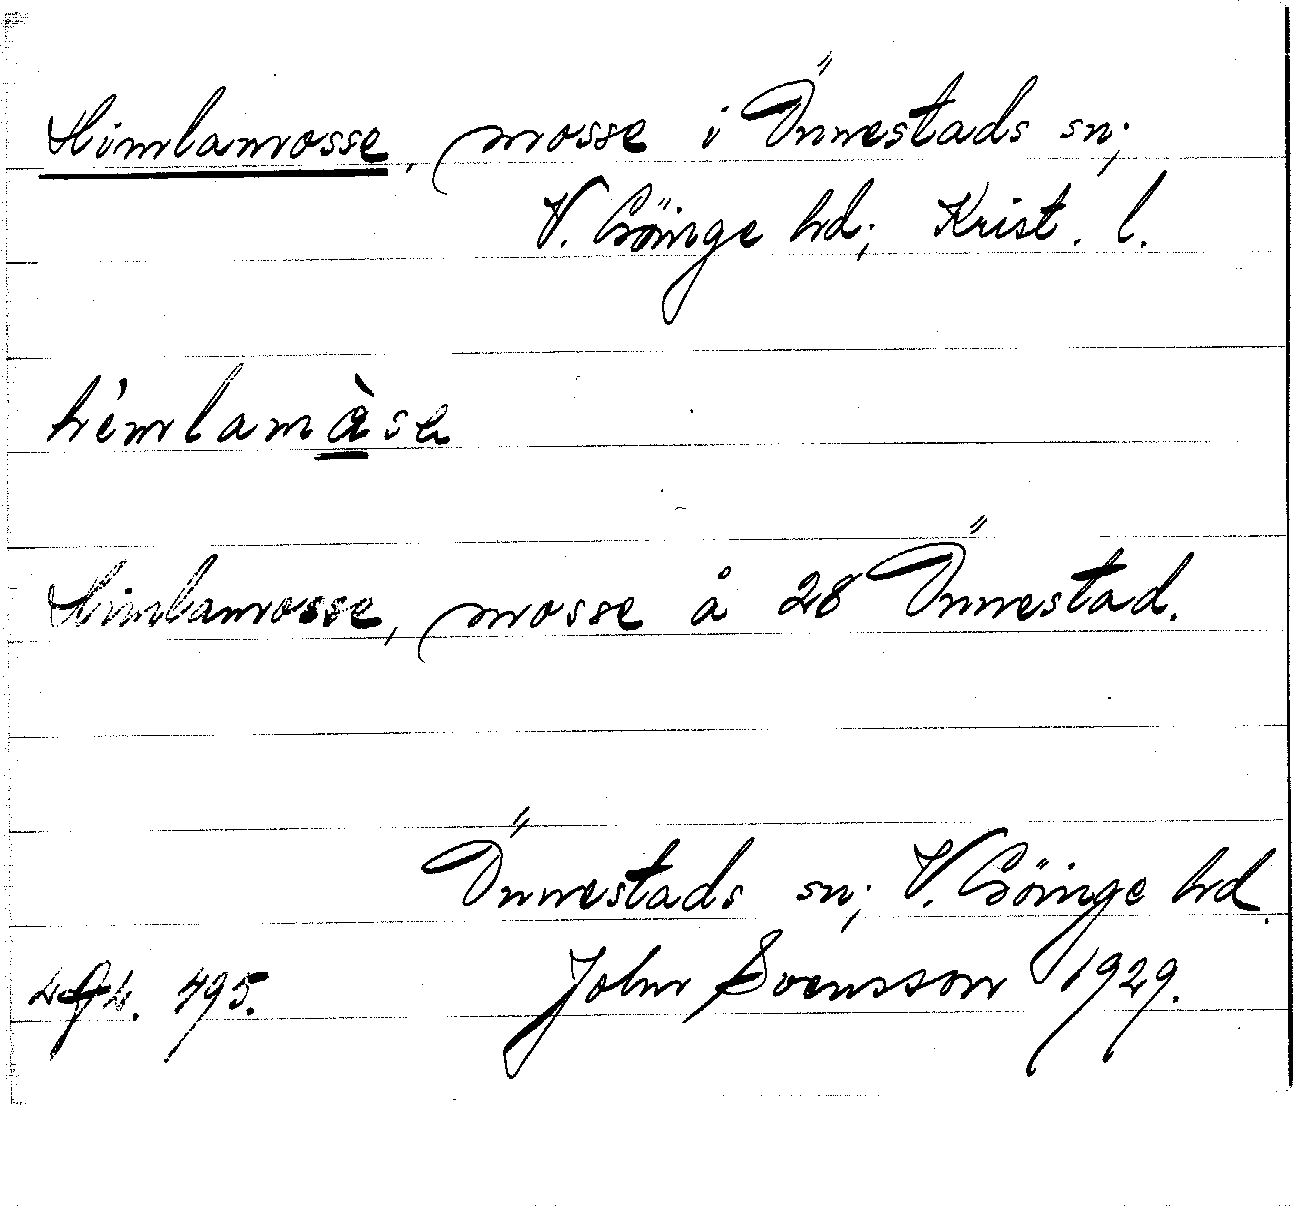 Himlamosse, mosse i Önnestads sn;
V. Göinge hd; Krist. l.
hímlamàse
Himlamosse, mosse å 28 Önnestad.
Önnestads sn; V. Göinge hd.
495. John Svensson 1929.